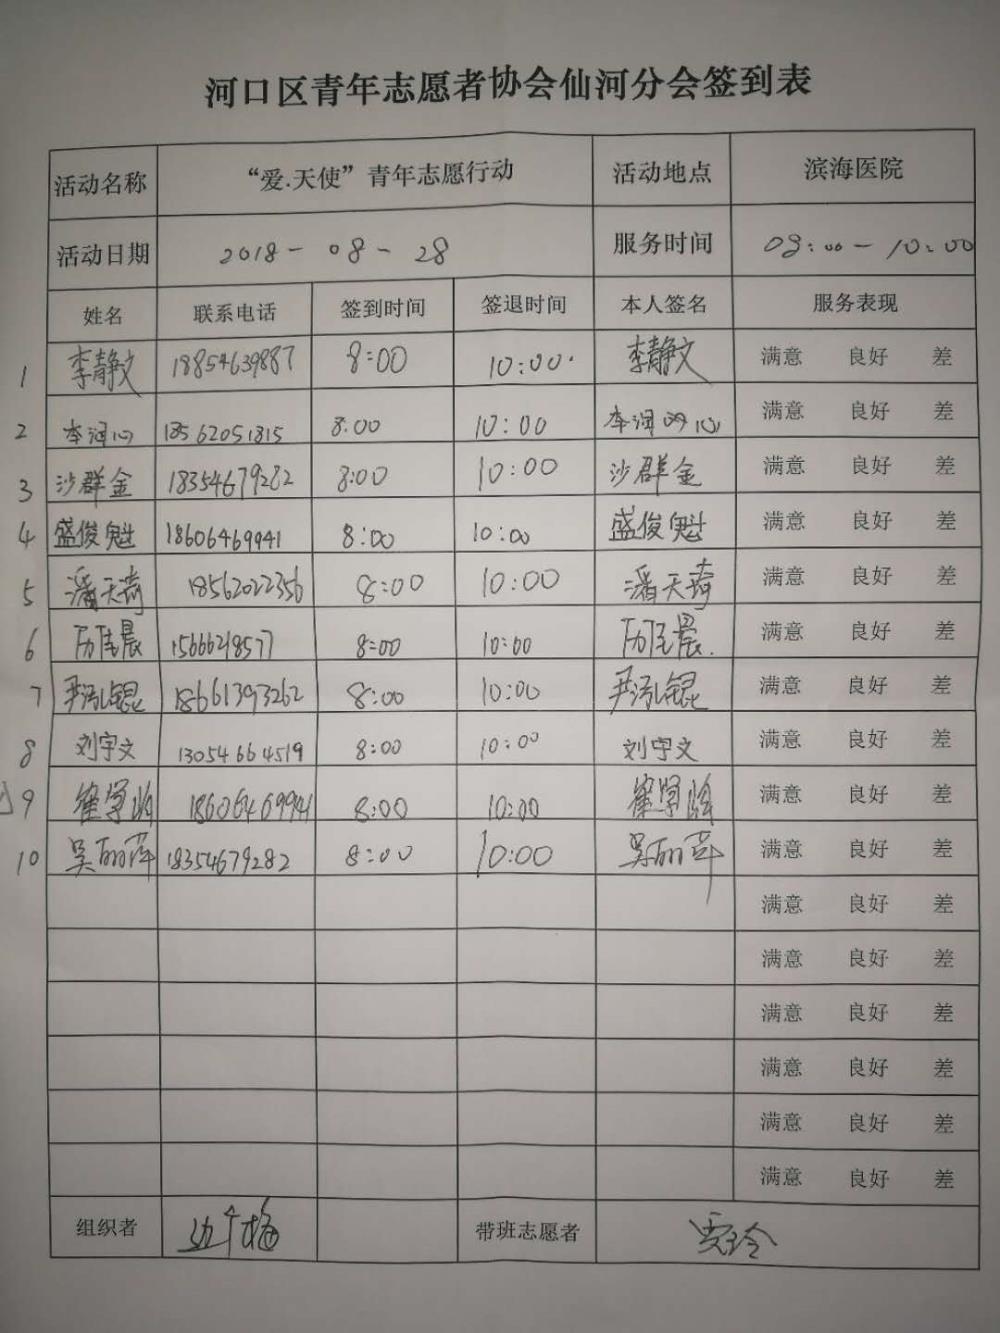 河口区青年志愿者协会仙河分会签到表
活动名称 “爱.天使”青年志愿行动 活动地点 滨海医院
活动日期 2018-08-28 服务时间 08:00-10:00
姓名 联系电话 签到时间 签退时间 本人签名 服务表现
1 李静文 18854639887 8:00 10:00 李静文 满意 良好 差
2 李润心 18562051815 8:00 10:00 李润 心 满意 良好 差
3 沙群金 18354679282 8:00 10:00 沙群金 满意 良好 差
4 盛俊魁 18606469941 8:00 10:00 盛俊魁 满意 良好 差
5 潘天琦 18562022356 8:00 10:00 潘天琦 满意 良好 差
6 8:00 10:00 满意 良好 差
7 18661393262 8:00 10:00 满意 良好 差
8 刘宇文 13054664519 8:00 10:00 刘宇文 满意 良好 差
9 18606469941 8:00 10:00 满意 良好 差
10 吴丽萍 18354679282 8:00 10:00 吴丽萍 满意 良好 差
满意 良好 差
满意 良好 差
满意 良好 差
满意 良好 差
满意 良好 差
满意 良好 差
组织者 带班志愿者 贾玲